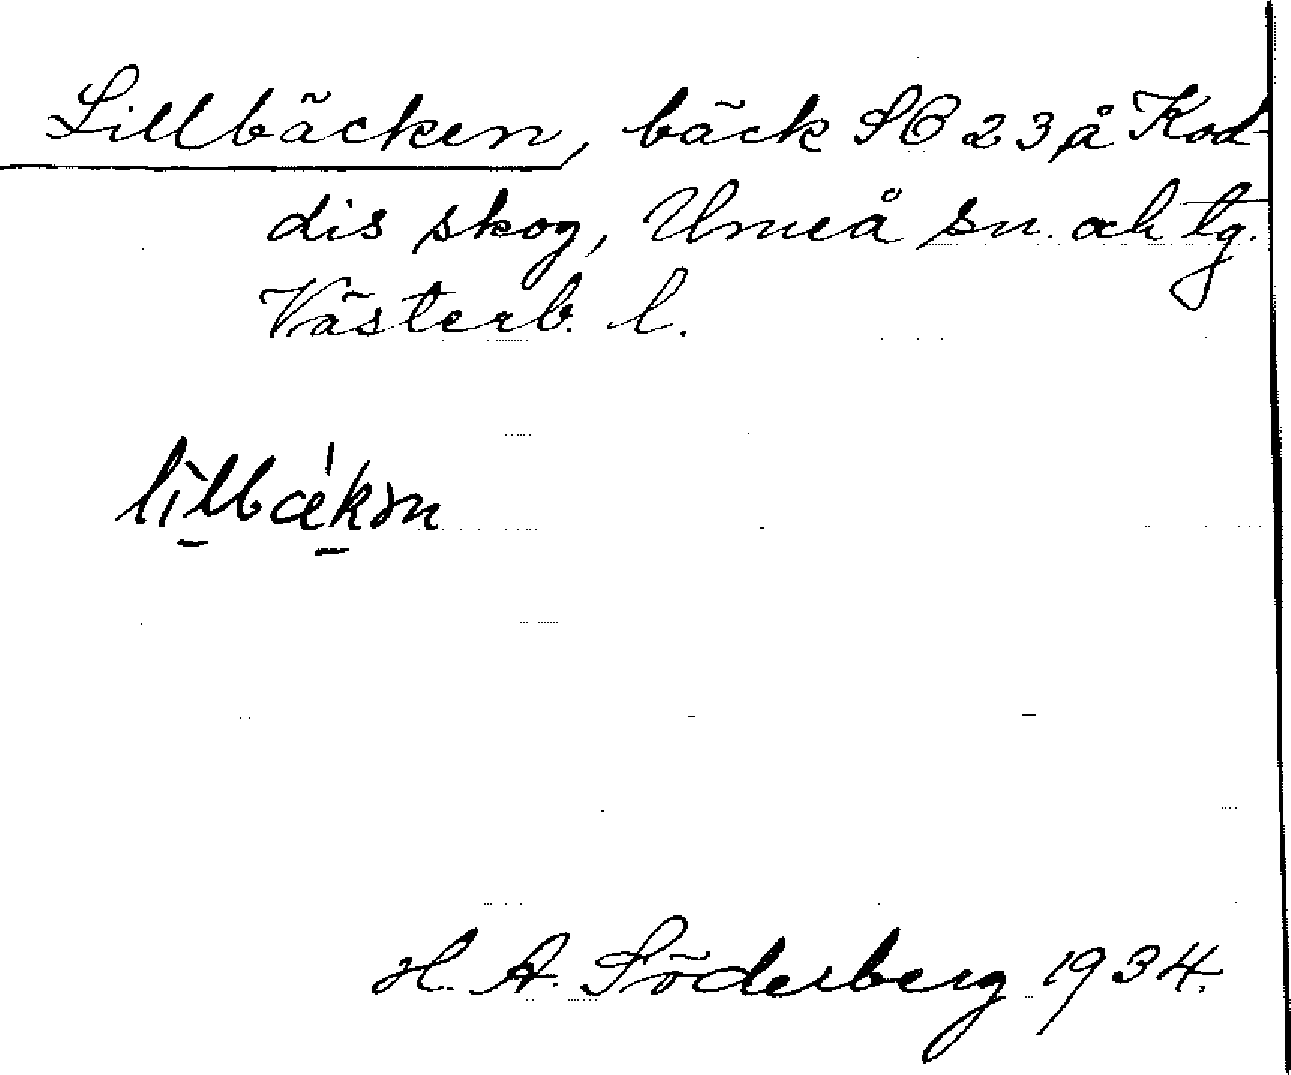 Lillbäcken, bäck SO 23 å Kod-
dis skog, Umeå sn. och tg.
Västerb. l.
lìlbǽkɜn
H. A. Söderberg 1934.